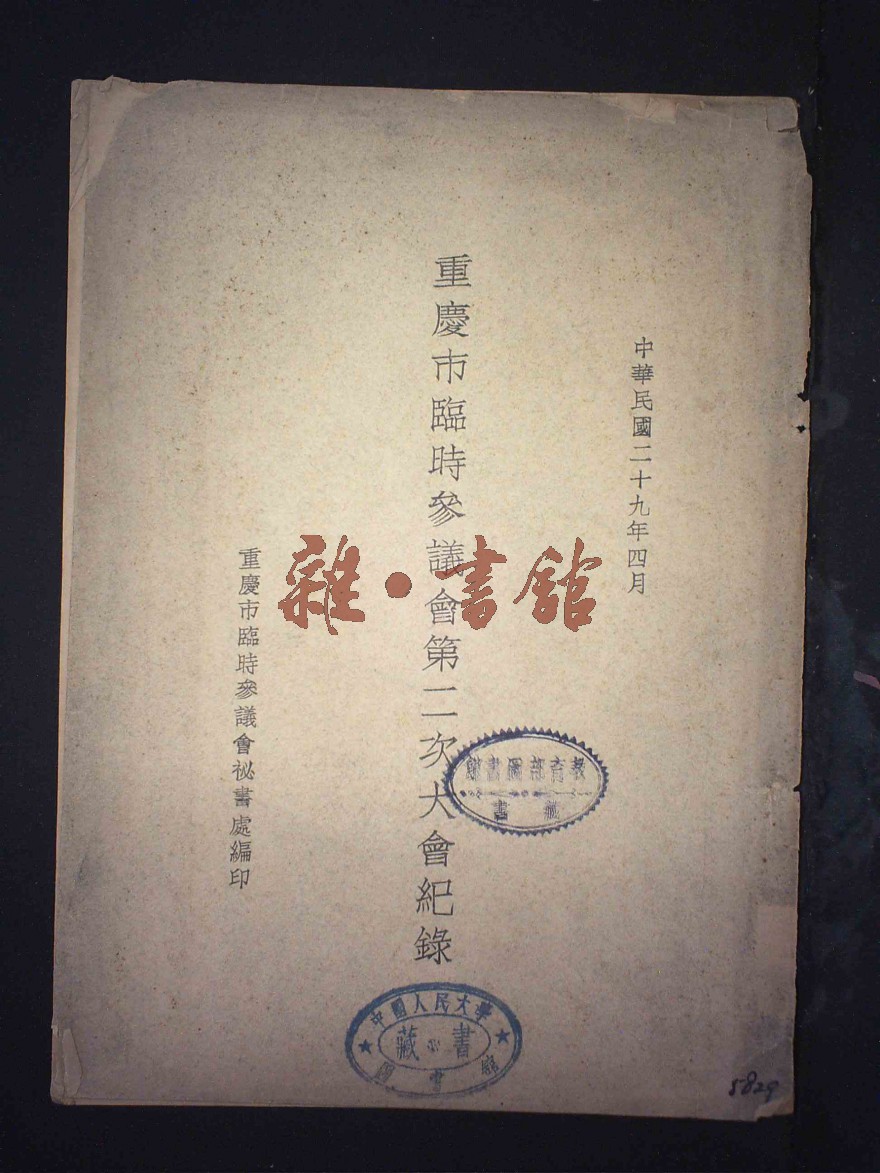 中華民國二十九年四月
重慶市臨時參議會第二次大會紀錄
重慶市臨時參議會祕書處編印
雜·書館
教育部圖書館
藏書
中國人民大學
圖書館
藏書
5829